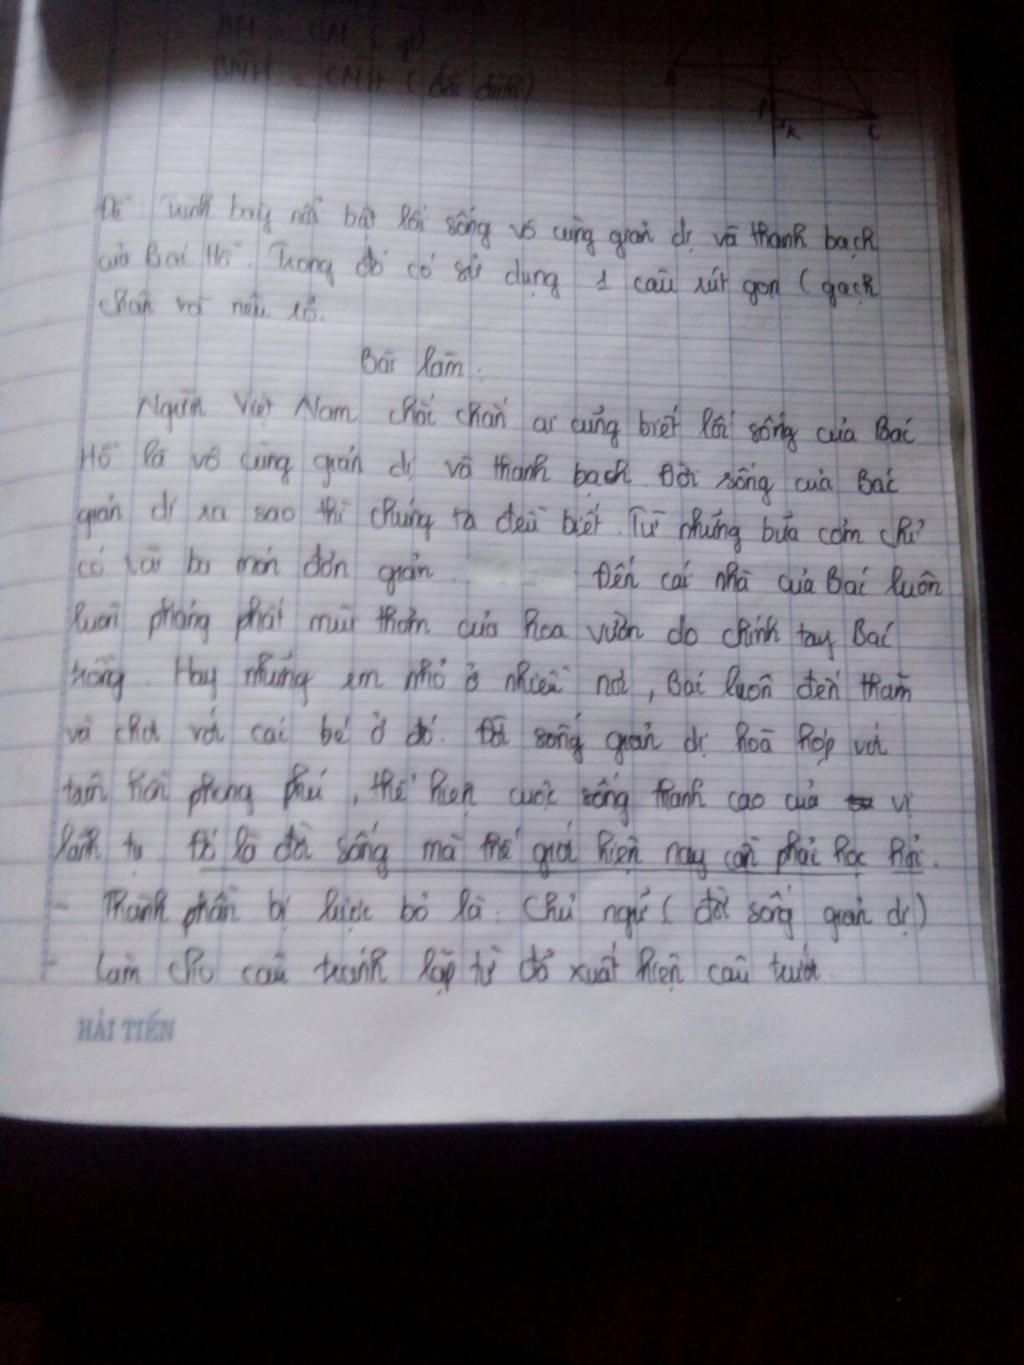 BNH = CNH (đối đỉnh)
B
K C
Đề: Trình bày nổi bật lối sống vô cùng giản dị và thanh bạch
của Bác Hồ. Trong đó có sử dụng 1 câu rút gọn (gạch
chân và nêu rõ.
Bài làm.
Người Việt Nam chắc chắn ai cũng biết lối sống của Bác
Hồ là vô cùng giản dị và thanh bạch. Đời sống của Bác
giản dị ra sao thì chúng ta đều biết. Từ những bữa cơm chỉ
có vài ba món đơn giản Đến cái nhà của Bác luôn
luôn phảng phất mùi thơm của hoa vườn do chính tay Bác
trồng. Hay những em nhỏ ở nhiều nơi, Bác luôn đến thăm
và chơi với các bé ở đó. Đời sống giản dị hoà hợp với
tâm hồn phong phú, thể hiện cuộc sống thanh cao của vị
lãnh tụ. Đó là đời sống mà thế giới hiện nay cần phải học hỏi.
- Thành phần bị lược bỏ là: Chủ ngữ (đời sống giản dị)
- Làm cho câu tránh lặp từ đã xuất hiện câu trước
HẢI TIẾN